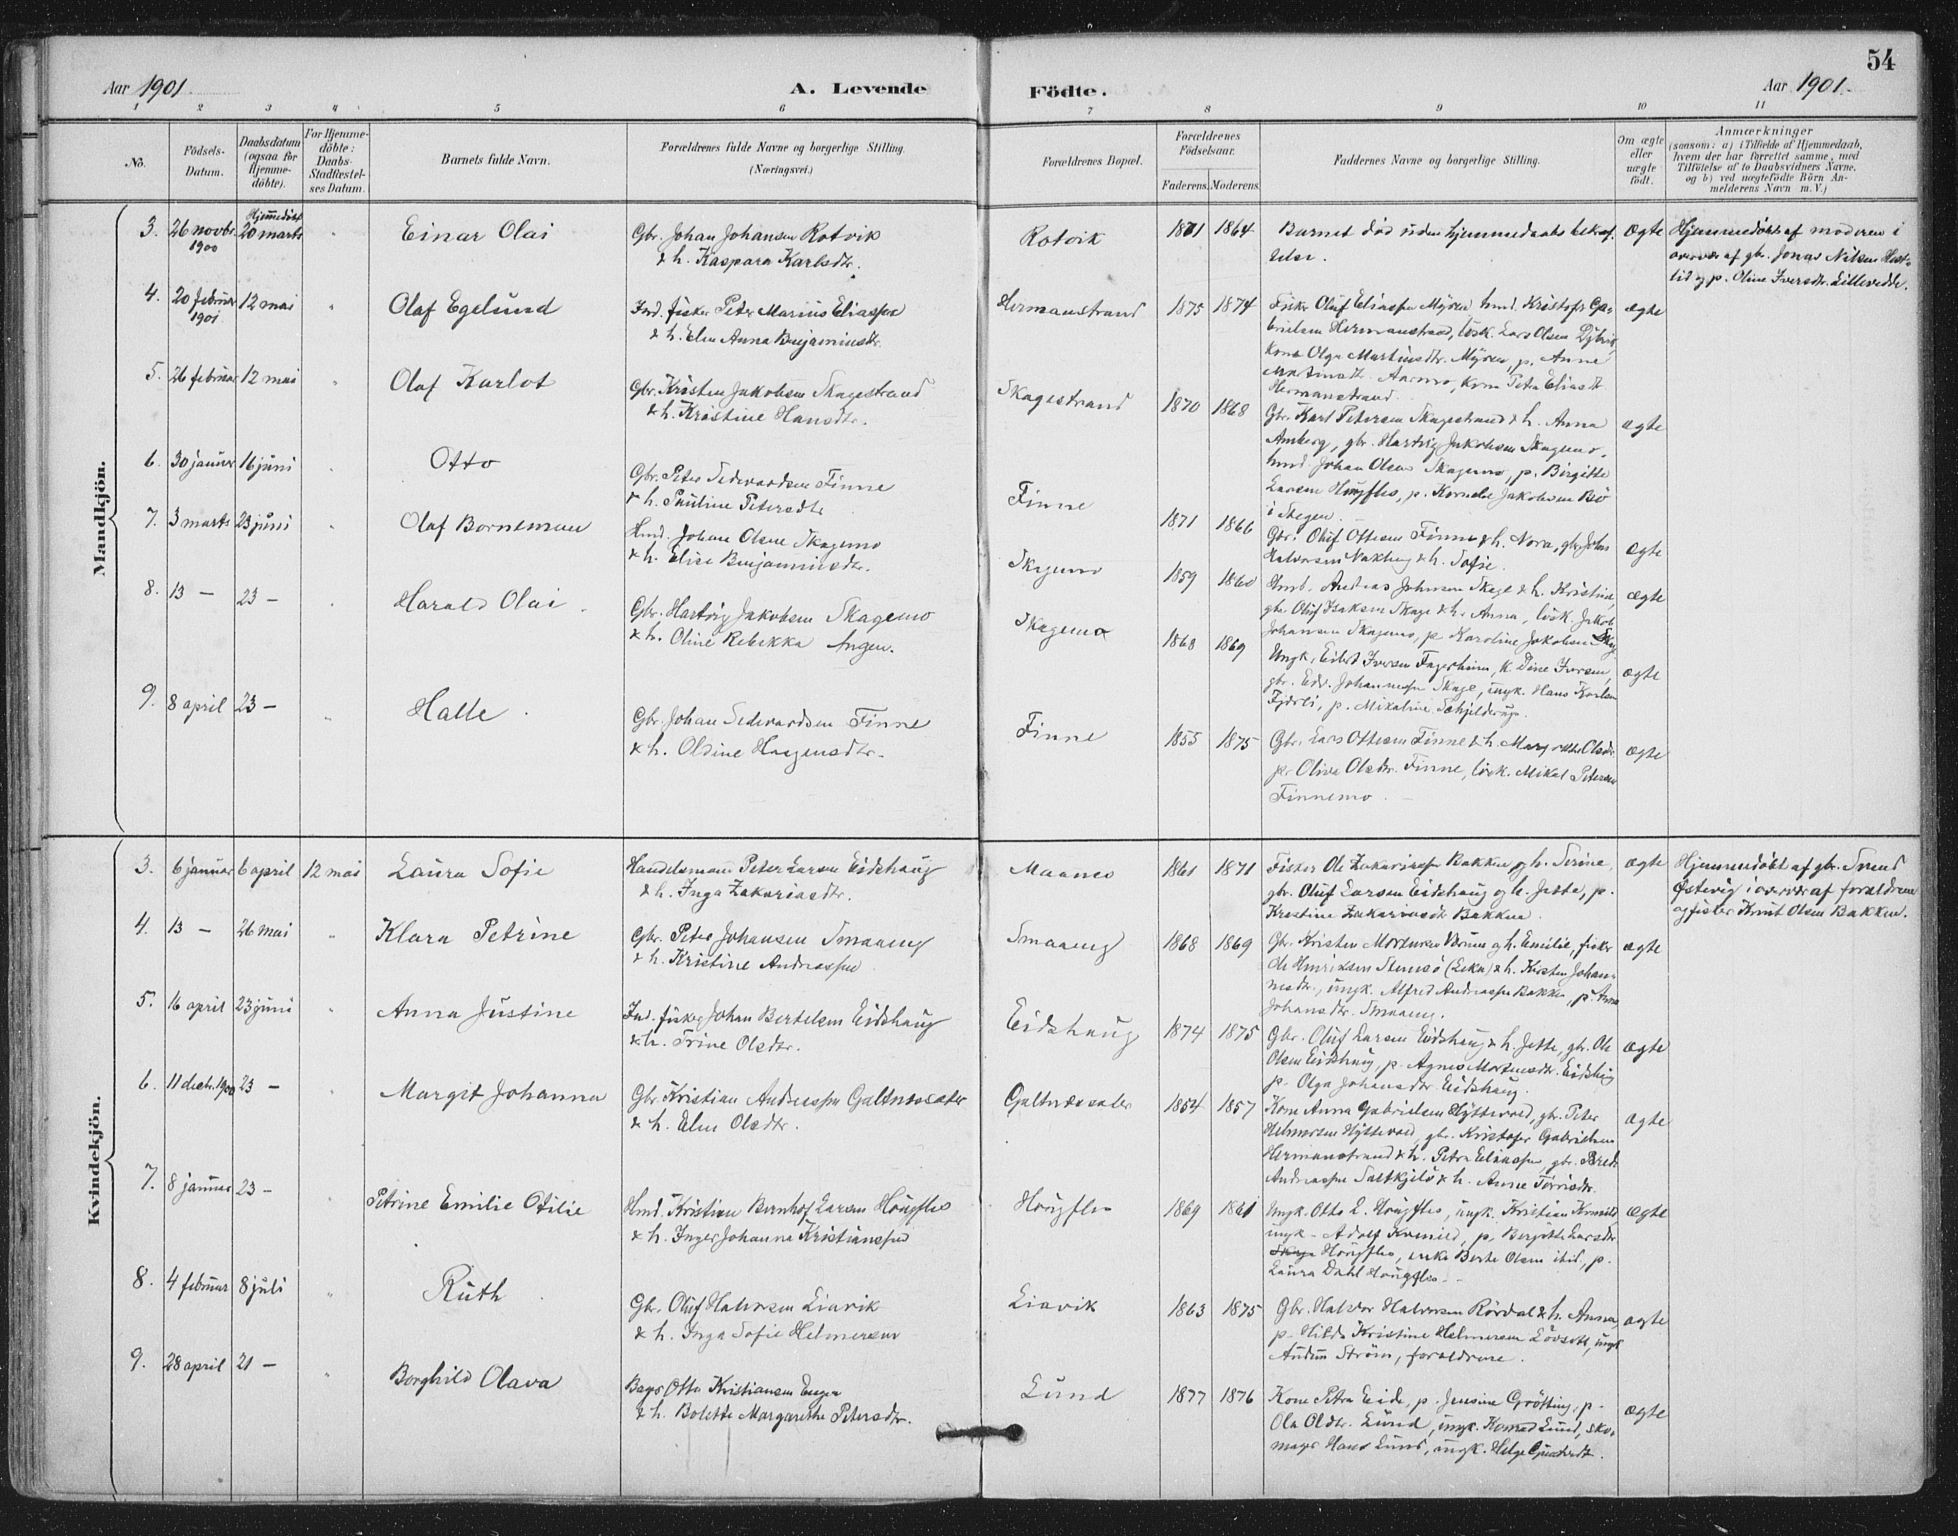 54
Aar 1901.
A. Levende
Födte.
Aar 1901.
1 2 3 4 5 6 7 8 9 10 11
No.
Födsels-Datum.
Daabsdatum (ogsaa for Hjemme-döbte).
For Hjemme-döbte: Daabs-Stadfæstelses Datum.
Barnets fulde Navn.
Forældrenes fulde Navne og borgerlige Stilling.
(Næringsvei.)
Forældrenes Bopæl.
Forældrenes Födselsaar.
Faderens. Moderens.
Faddernes Navne og borgerlige Stilling.
Om ægte eller uægte födt.
Anmærkninger
(saasom: a) i Tilfælde af Hjemmedaab,
hvem der har forrettet samme, med
Tilföielse af to Daabsvidners Navne,
og b) ved uægtefödte Börn An-
melderens Navn m. V.)
Mandkjön.
3. 26 novbr. 1900 Hjemmedöbt 20 marts " Einar Olai
Gbr. Johan Johansen Rotvik
& h. Kaspara Karlsdtr.
Rotvik 1861 1864
Barnet död uden hjemmedaabs bekræf-
telse.
Ægte
Hjemmedöbt af moderen i
overvær af gbr. Jonas Nilsen
og p. Oline Iversdtr.
4. 20 februar 1901 12 mai " Olaf Egelund
Ind. fisker Peter Marius Eliassen
& h. Elen Anna Benjaminsdtr.
Hermanstrand 1875 1874
Fisker Oluf Eliassen Myren, hmd. Kristofer Ga-
brielsen Hermanstrand, lösk. Lars Olsen
kone Olga Martinsdtr. Myren, p. Anne
Martinsdtr. Aarmo, kone Petra Eliasdtr.
Hermanstrand.
ægte
5. 26 februar 12 mai " Olaf Karlot
Gbr. Kristen Jakobsen Skagestrand
& h. Kristine Hansdtr.
Skagestrand 1870 1868
Gbr. Karl Petersen Skagestrand & h. Anna
Amberg, gbr. Hartvig Jakobsen Skagemo,
hmd Johan Olsen Skagemo, p. Birgitte
Larsen Höugfles, p. Kornelie Jakobsen Bö
i Skagen.
ægte
6. 30 januar 16 juni " Otto
Gbr. Peter Sedevardsen Finne
& h. Pauline Petersdtr.
Finne 1871 1866
Gbr. Oluf Ottesen Finne & h. Nora, gbr. Johs
Halvorsen & h. Sofie.
Ægte
7. 3 marts 23 juni " Olaf Borneman
Hmd. Johan Olsen Skagemo
& h. Elise Benjaminsdtr.
Skagemo 1859 1860
Hmb. Andreas Johnsen Skage & h. Kristine,
gbr. Oluf Isaksen Skage & h. Anna, lösk. Jakob
Johansen Skagemo, p. Karoline Jakobsen Skage
ægte
8. 13 — 23 — " Harald Olai
Gbr. Hartvig Jakobsen Skagemo
& h. Oline Rebekka Angen.
Skagemo 1868 1869
Ungk. Edvard Iversen Fagerheim, k. Dine Iversen,
gbr. Edv. Johannesen Skage, ungk. Hans Karlsen
p. Mikaline Schjelderup.
ægte
9. 8 april 23 — " Halle
Gbr. Johan Sedevardsen Finne
& h. Oldine Haagensdtr.
Finne 1855 1875
Gbr. Lars Ottesen Finne & h. Margrethe Olsdtr.
p. Oliva Olsdtr. Finne, lösk. Mikal Petersen
Finnemo.
ægte
Kvindekjön.
3. 6 januar 6 april 12 mai Laura Sofie
Handelsmann Peter Larsen Eidshaug
& h. Inga Zakariasdtr.
Maanes 1861 1871
Fisker Ole Zakariassen Bakken og h. Serine,
gbr. Oluf Larsen Eidshaug og h. Jette, p.
Kristine Zakariasdtr Bakken.
ægte
Hjemmedöbt af gbr. Svend
Östevig i overvær af forældrene
og fisker Knut Olsen Bakken.
4. 13 — 26 mai " Klara Petrine
Gbr. Peter Johansen Smaaeng
& h. Kristine Andreassen
Smaaeng 1868 1869
Gbr. Kristen Mortensen og h. Emilie, fisker
Ole Henriksen (Leka) & h. Kirsten Johan-
nesdtr., ungk. Alfred Andreassen Bakken, p. Anna
Johansdtr. Smaaeng.
ægte
5. 16 april 23 juni " Anna Justine
Ind. fisker Johan Bertelsen Eidshaug
& h. Trine Olsdtr.
Eidshaug 1874 1875
Gbr. Oluf Larsen Eidshaug & h. Jette, gbr. Ole
Olsen Eidshaug, p. Agnes Mortensdtr. Eidshaug
p. Olga Johansdtr. Eidshaug.
ægte
6. 11 decbr. 1900 23 — " Margit Johanna
Gbr. Kristian Andreassen Galtnæssæter
& h. Elen Olsdtr.
Galtnæssæter 1854 1857
Kone Anna Gabrielsen Hyttevold, gbr. Peter
Helmersen Hyttevold, gbr. Kristofer Gabrielsen
Hermanstrand & h. Petra Eliassen, gbr.
Andreassen & h. Anne
ægte
7. 8 januar 23 — " Petrine Emilie Otilie
Hmd. Kristian Bernhof Larsen Höugfles
& h. Inger Johanna Kristianssen
Höugfles 1869 1861
Ungk. Otto L. Höugfles, ungk. Kristian
ungk. Adolf p. Bergitte Larsdtr
Höugfles, enke Berte Olsen ibid, p.
Laura Dahl Höugfles.
Ægte
8. 4 februar 8 juli " Ruth
Gbr. Oluf Halvorsen Liavik
& h. Inga Sofie Helmersen
Liavik 1863 1875
Gbr. Haldor Halvorsen Rördal & h. Anna,
p. Hilda Kristine Helmersen ungk
Ström, forældrene.
ægte
9. 28 april 21 — " Borghild Olava
Otto Kristiansen
& h. Bolette Margarethe Petersdtr.
Lund 1877 1876
Kone Petra Eide, p. Jensine Grötting, p.
Ola Oldtr. Lund, ungk. Konrad Lund, sko-
mager Hans Lund, ungk. Helge
ægte